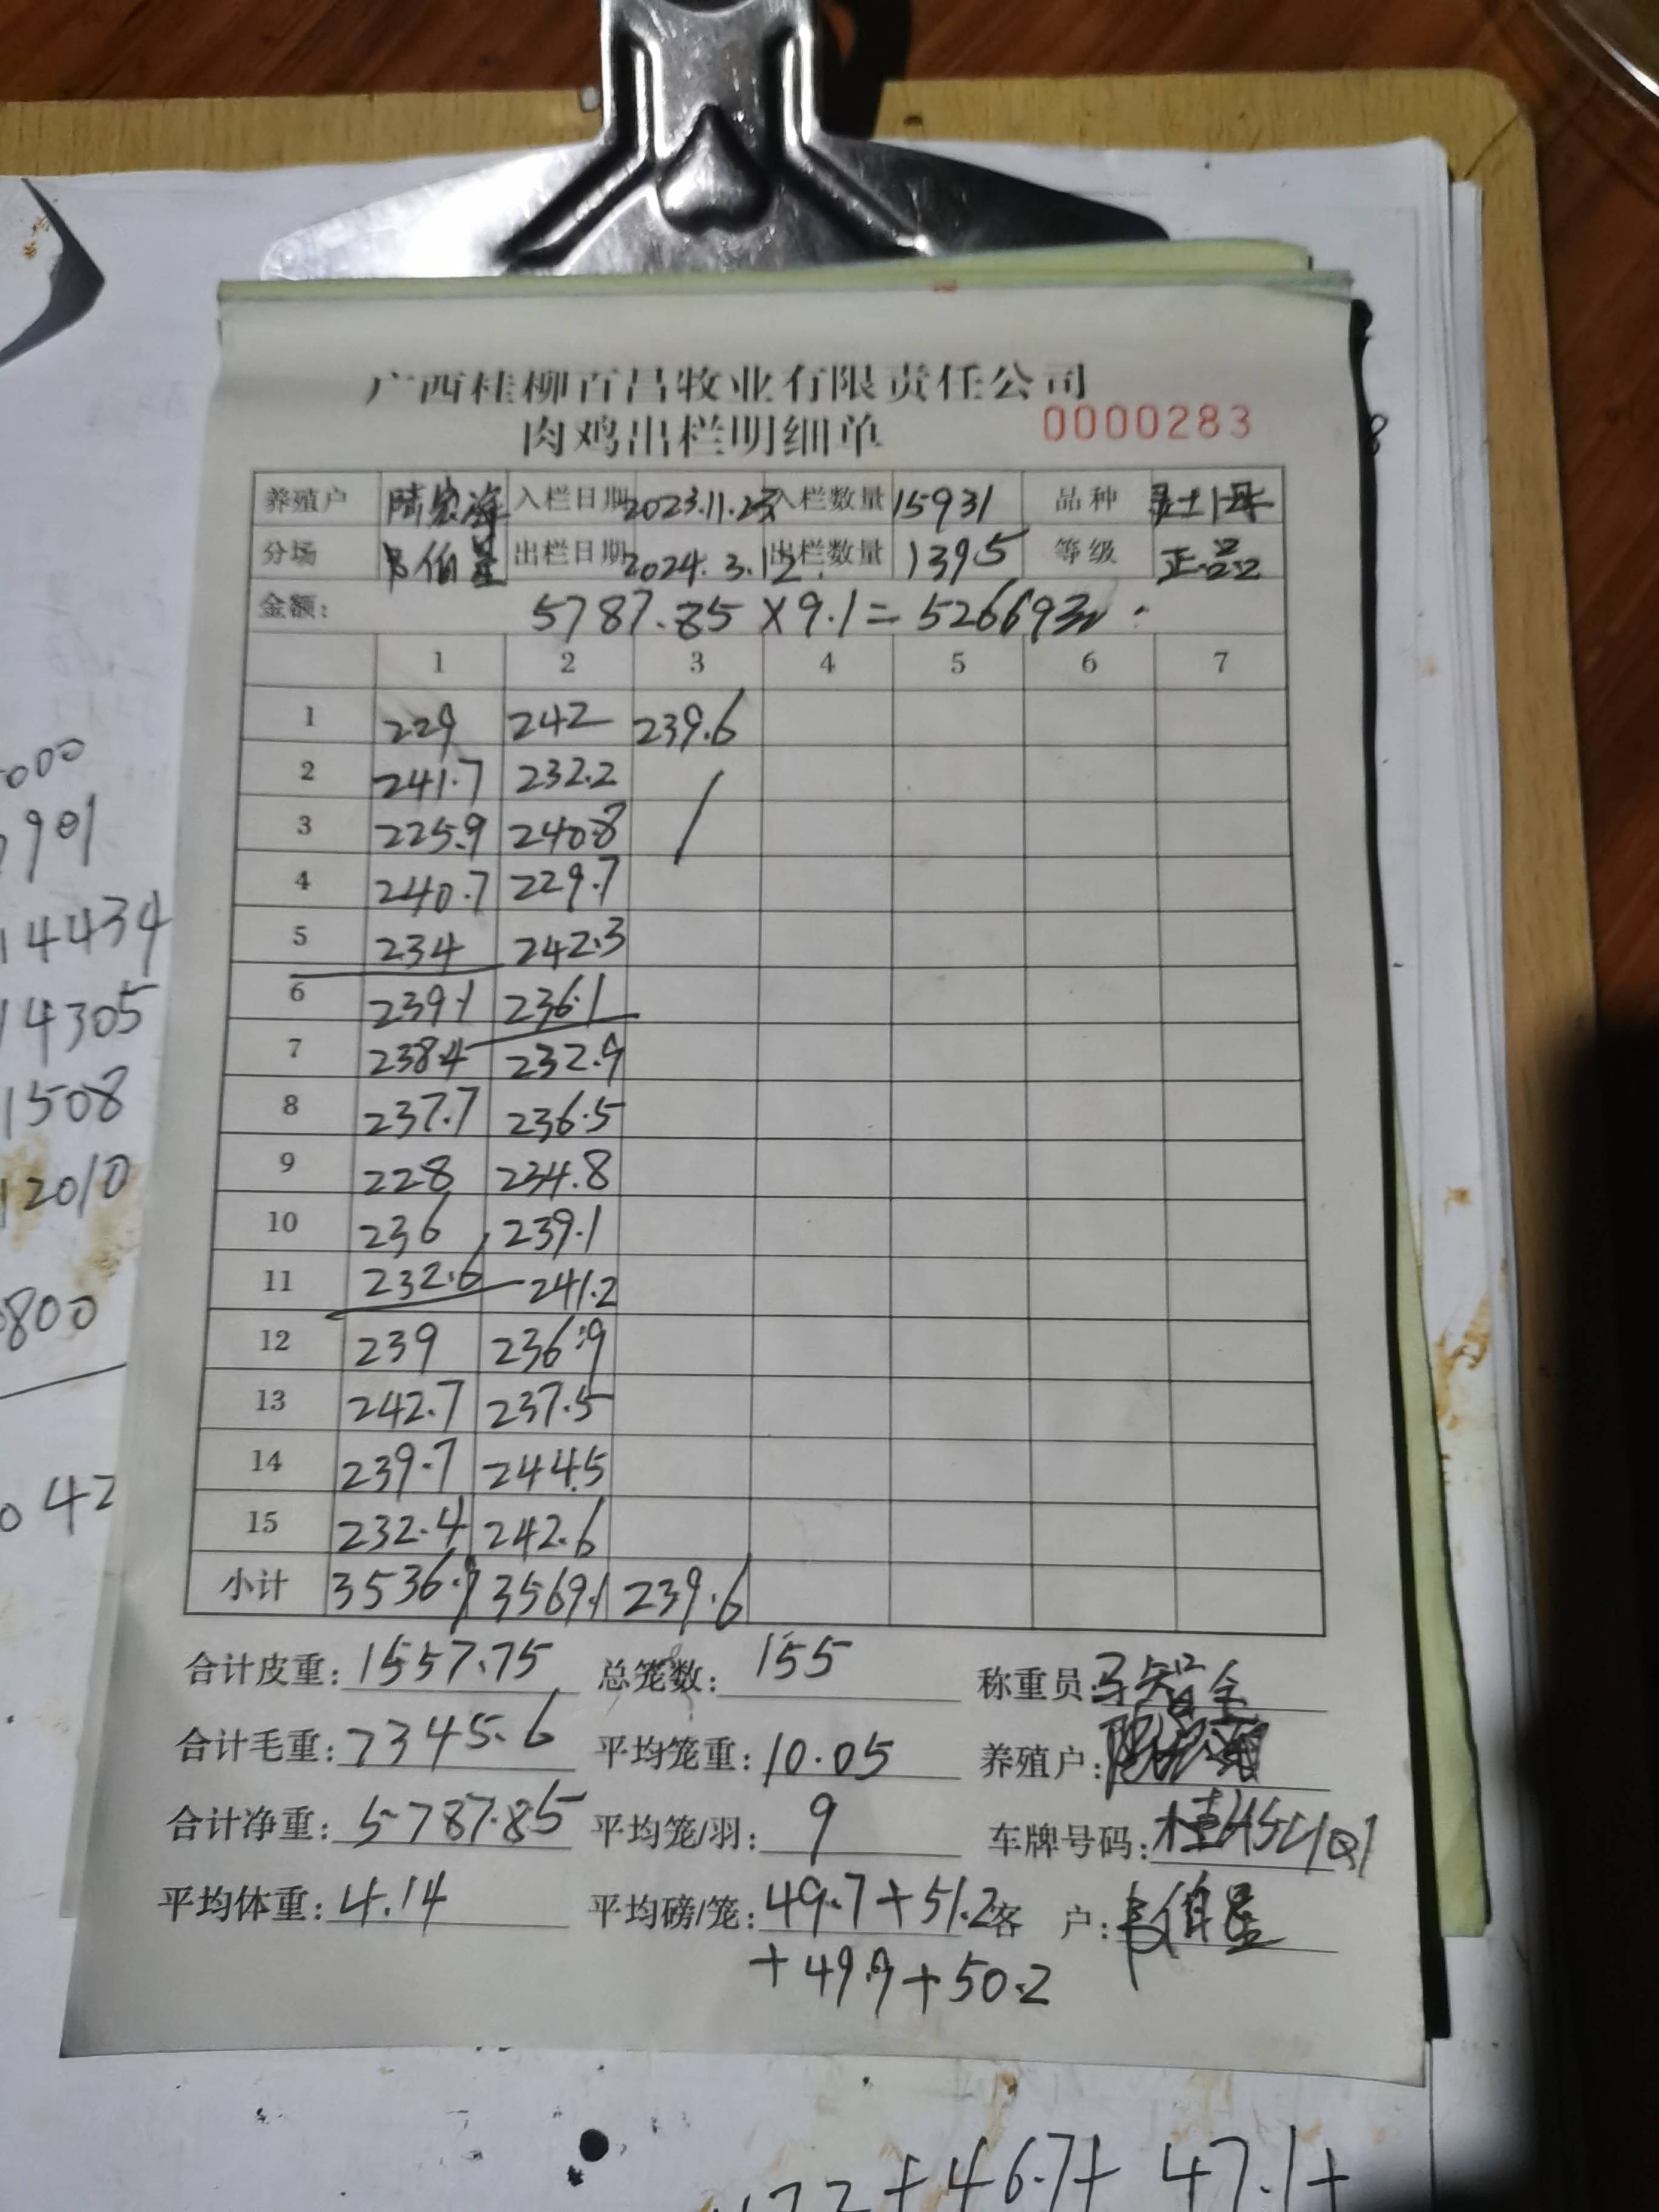 广西桂柳百昌牧业有限责任公司
肉鸡出栏明细单 0000283
养殖户 陆宏海 入栏日期 2023.11.23 入栏数量 15931 品种
分场 伯星 出栏日期 2024.3.12. 出栏数量 1395 等级 正品
金额: 5787.85×9.1=52669元
1 2 3 4 5 6 7
1 229 242 239.6
2 241.7 232.2 /
3 225.9 240.8
4 240.7 229.7
5 234 242.3
6 239.1 236.1
7 238.4 232.9
8 237.7 236.5
9 228 234.8
10 236 239.1
11 232.6 241.2
12 239 236.9
13 242.7 237.5
14 239.7 244.5
15 232.4 242.6
小计 3536.9 3569.1 239.6
合计皮重: 1557.75 总笼数: 155 称重员: 马智全
合计毛重: 7345.6 平均笼重: 10.05 养殖户:
合计净重: 5787.85 平均笼/羽: 9 车牌号码:
平均体重: 4.14 平均磅/笼: 49.7+51.2 客 户: 伯星
+49.9+50.2
000
901
14434
14305
1508
12010
800
042
+46.7+ 47.1+